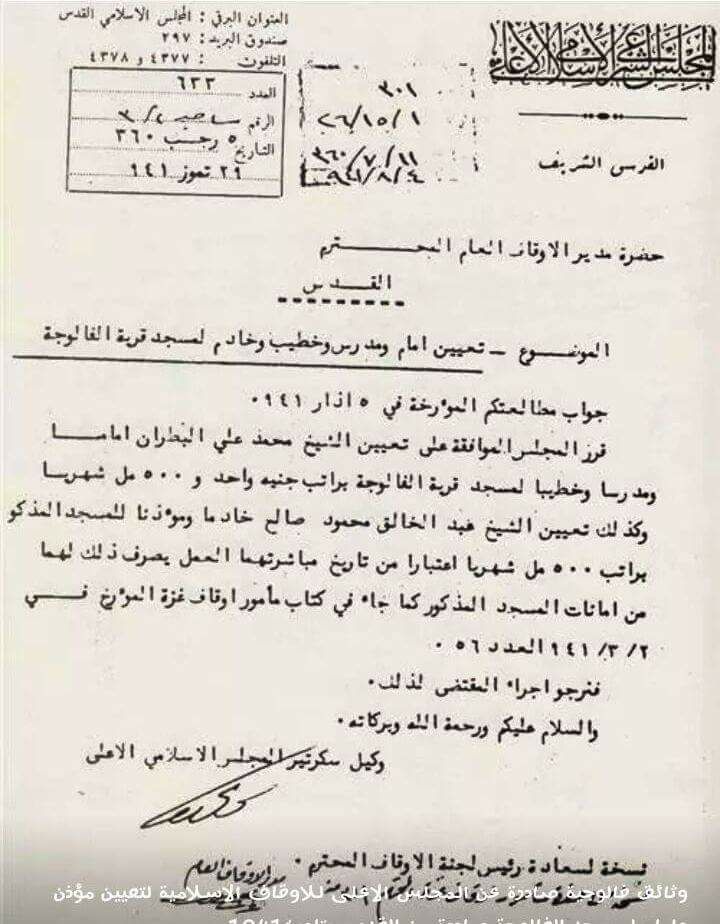 المجلس الشرعي الاسلامي الاعلى
القدس الشريف
العنوان البرقي : المجلس الاسلامي القدس
صندوق البريد : ٢٩٧
التلفون : ٤٣٧٧ و ٤٣٧٨
العدد ٦٢٢
الرقم
التاريخ ٥ رجب ٣٦٠
٢٩ تموز ٩٤١
٣٠١
٢٦/١٥/١
٣٦٠/٧/١١
٩٤١/٨/٤
حضرة مدير الاوقاف العام المحترم
القدس
الموضوع – تعيين امام ومدرس وخطيب وخادم لمسجد قرية الفالوجة
جواب مطالعتكم المؤرخة في ٥ اذار ٩٤١٠
قرر المجلس الموافقة على تعيين الشيخ محمد علي البطران اماما
ومدرسا وخطيبا لمسجد قرية الفالوجة براتب جنيه واحد و ٥٠٠ مل شهريا
وكذلك تعيين الشيخ عبد الخالق محمود صالح خادما ومؤذنا للمسجد المذكو
براتب ٥٠٠ مل شهريا اعتبارا من تاريخ مباشرتهما العمل يصرف ذلك لهما
من امانات المسجد المذكور كما جاء في كتاب مأمور اوقاف غزة المؤرخ في
٩٤١/٣/٢ العدد ٥٦ ٠
فنرجو اجراء المقتضى لذلك٠
والسلام عليكم ورحمة الله وبركاته٠
وكيل سكرتير المجلس الاسلامي الاعلى
نسخة لسعادة رئيس لجنة الاوقاف المحترم ٠
مدير الاوقاف العام
وثائق فالوجية صادرة عن المجلس الاعلى للاوقاف الاسلامية لتعيين مؤذن